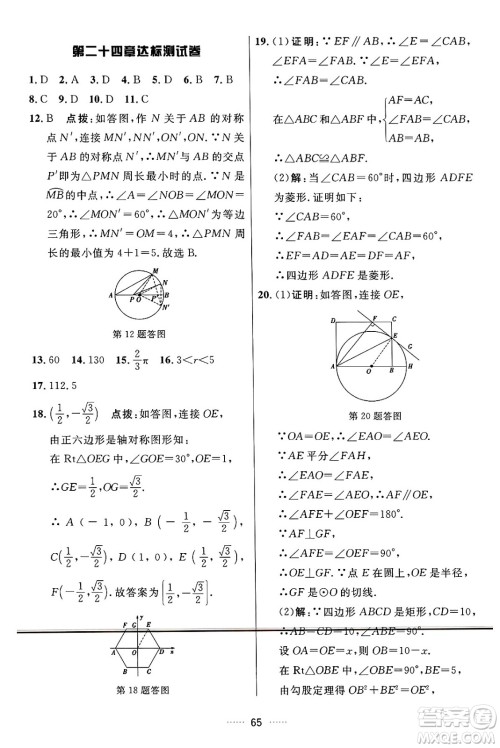 第二十四章达标测试卷
1. D 2. A 3. D 4. B 5. D 6. A 7. B
8. C 9. D 10. D 11. C
12. B 点拨：如答图，作 N 关于 AB 的对称
点 N′，连接 MN′，ON′，ON.∵N
关于 AB 的对称点 N′，∴MN′与 AB 的交点
P′即为△PMN 周长最小时的点，∵N 是
MB的中点，∴∠A=∠NOB=∠MON=
20°，∴∠MON′=60°，∴△MON′为等边
三角形，∴MN′=OM=4，∴△PMN 周
长的最小值为 4+1=5.故选 B.
A P O P′ B M N N′
第 12 题答图
13. 60 14. 130 15. 2/3 π 16. 3＜r＜5
17. 112.5
18. (1/2，-√3/2) 点拨：如答图，连接 OE，
由正六边形是轴对称图形知：
在 Rt△OEG 中，∠GOE=30°，OE=1.
∴GE=1/2，OG=√3/2.
∴ A(-1，0)，B(-1/2，-√3/2)，
C(1/2，-√3/2)，D(1，0)，E(1/2，√3/2)，
F(-1/2，√3/2).故答案为(1/2，-√3/2)
第 18 题答图
19. (1) 证明：∵EF∥AB，∴∠E=∠CAB，
∠EFA=∠FAB，∵∠E=∠EFA，
∴∠FAB=∠CAB，
在△ABC 和△ABF 中，
AF=AC
∠FAB=∠CAB，
AB=AB
∴△ABC≌△ABF；
(2) 解：当∠CAB=60°时，四边形 ADFE
为菱形. 证明：∵∠CAB=60°，
∴∠FAB=∠CAB=∠E=60°，
∴EF=AD=AE，
∴四边形 ADFE 是菱形.
20. (1) 证明：如答图，连接 OE，
D F C E A O B H G
第 20 题答图
∵OA=OE，∴∠EAO=∠AEO，
∵AE 平分∠FAH，∴∠EAO=∠FAE，
∴∠FAE=∠AEO，∴AF∥OE，
∴∠AFE+∠OEF=180°，
∵AF⊥GF，∴∠AFE=∠OEF=90°，
∴OE⊥GF，∵点 E 在圆上，OE 是半径，
∴GF 是⊙O 的切线.
(2) 解：∵四边形 ABCD 是矩形，CD=10，
∴AB=CD=10，∠ABE=90°，
设 OA=OE=x，则 OB=10-x，
在 Rt△OBE 中，∠OBE=90°，BE=5，
由勾股定理得：OB²+BE²=OE²，
65